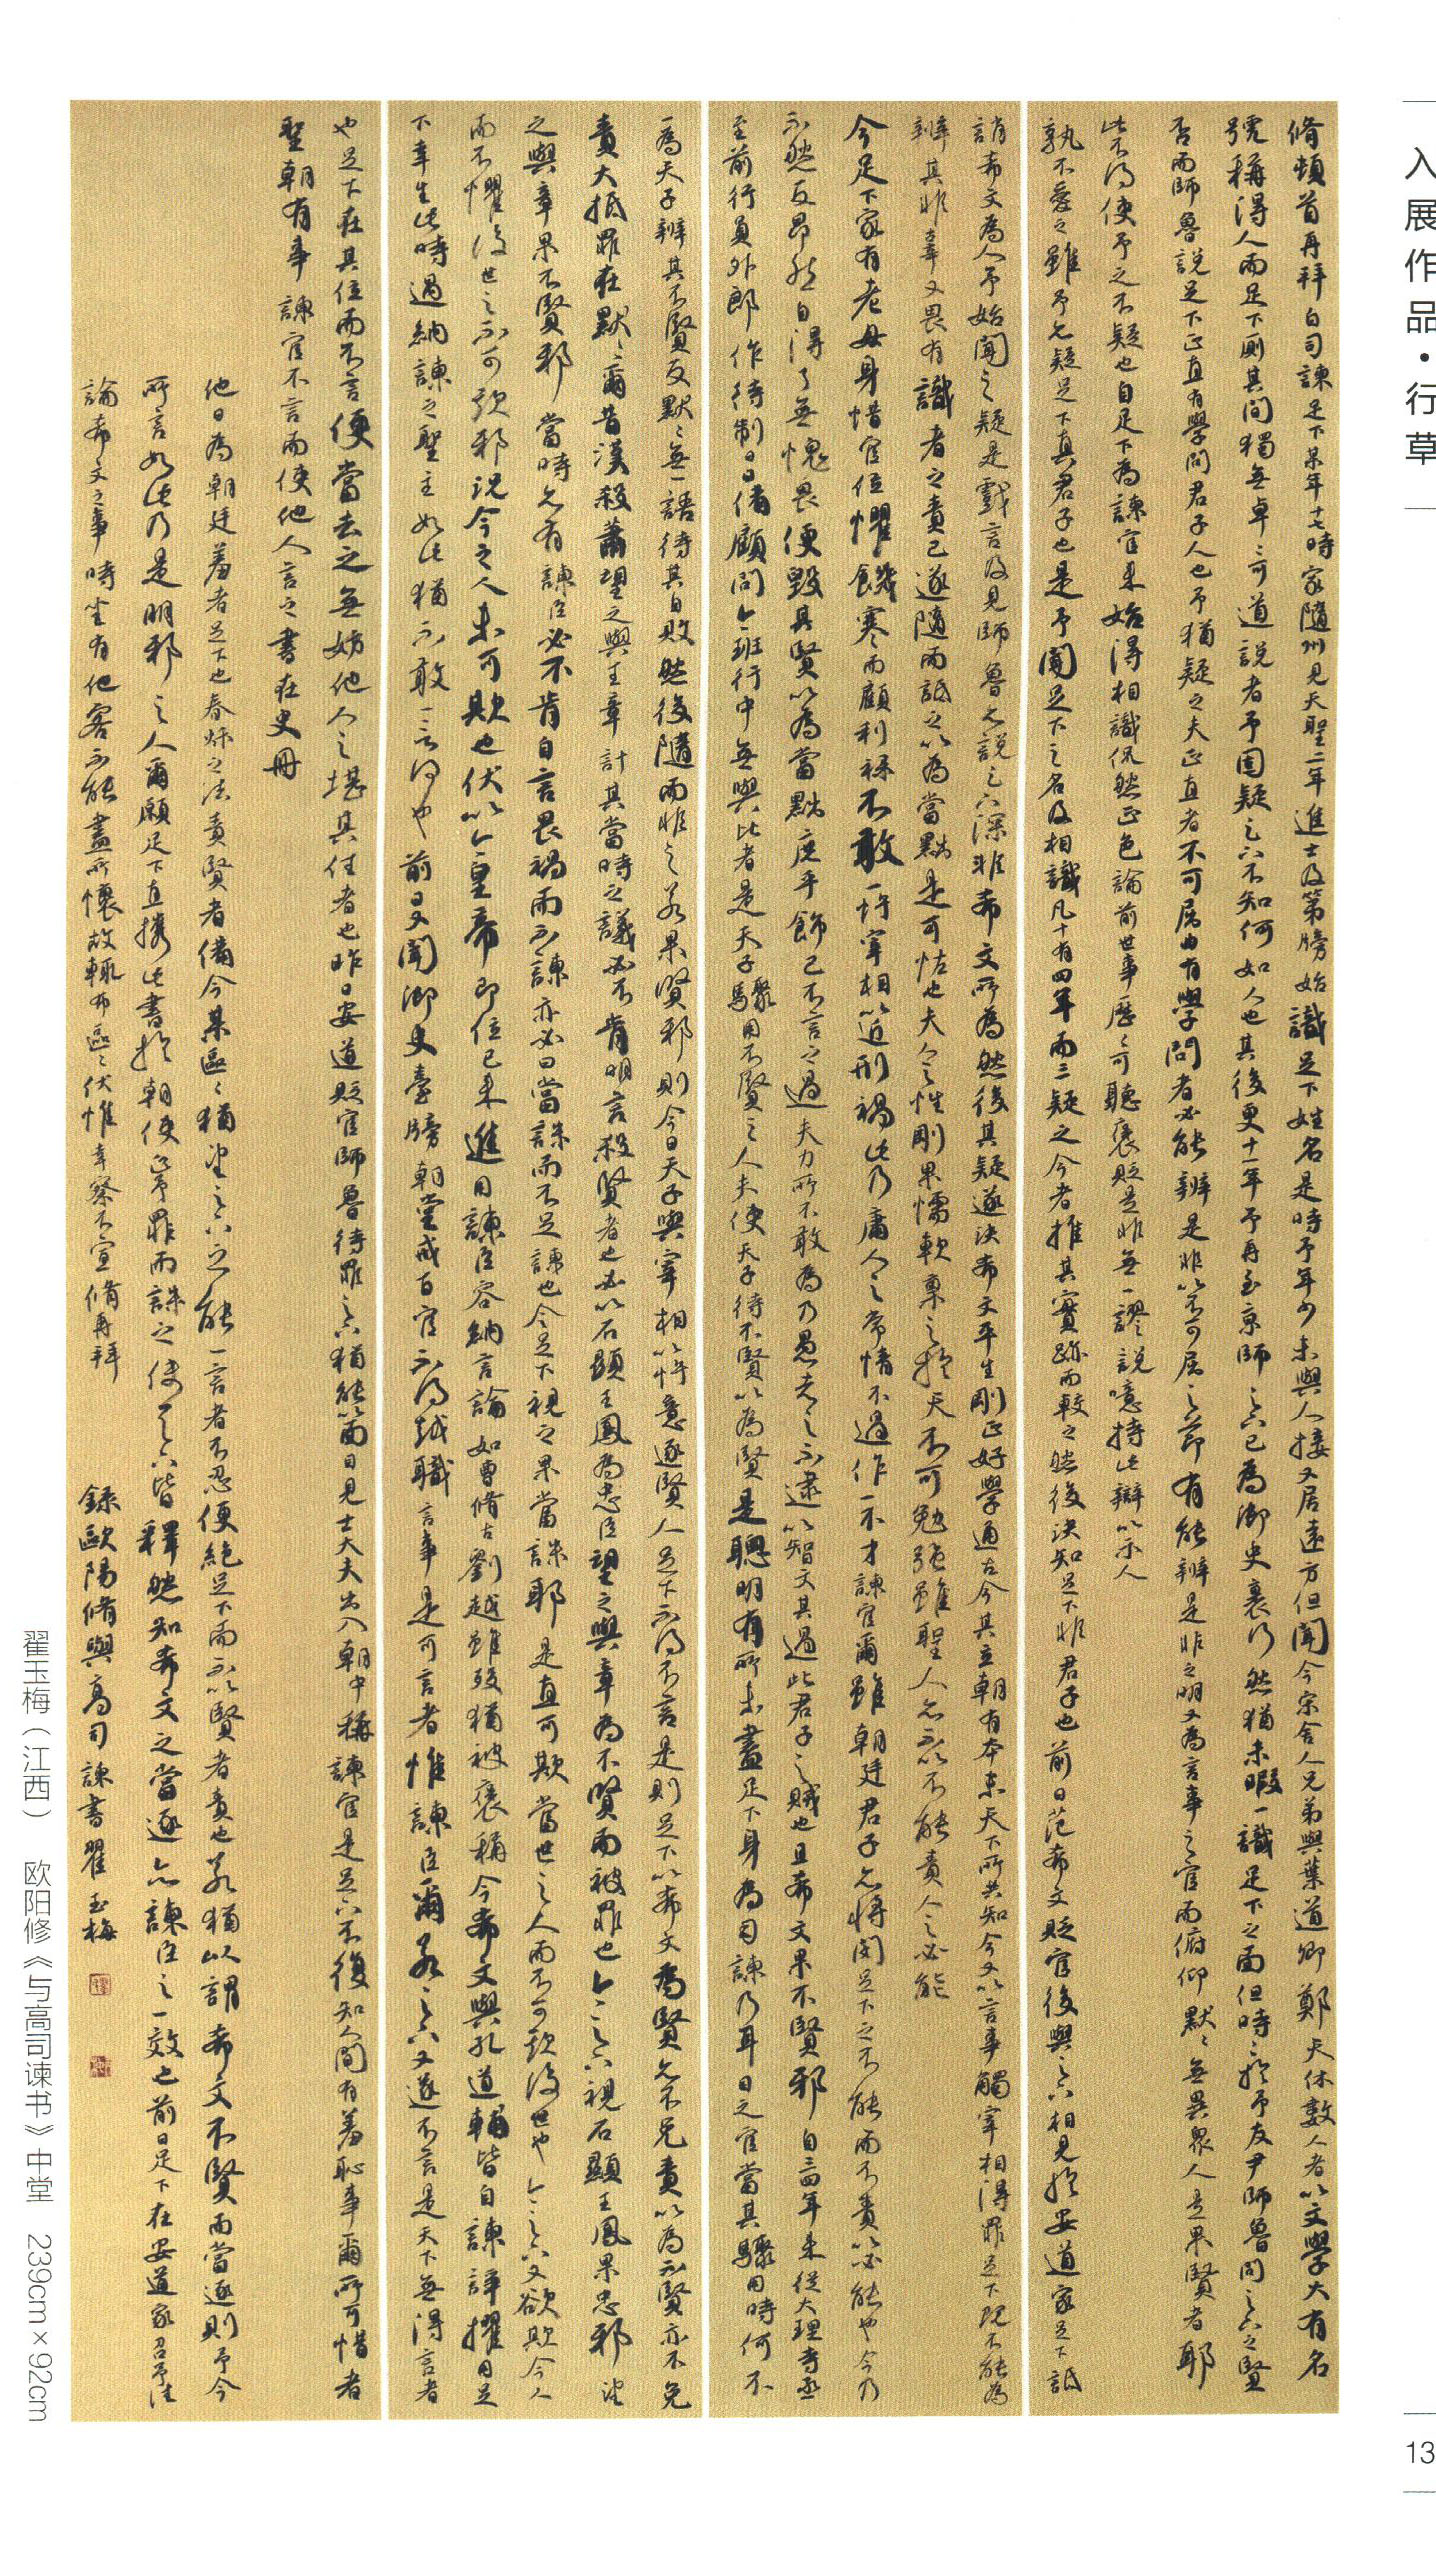 脩頓首再拜白司諫足下某年十七時家隨州見天聖二年進士及第牓始識足下姓名是時予年少未與人接又居遠方但聞今宋舍人兄弟與葉道卿鄭天休數人者以文學大有名
號稱得人而足下厠其間獨無卓卓可道說者予固疑足下不知何如人也其後更十一年予再至京師足下已為御史裏行然猶未暇一識足下之面但時時於予友尹師魯問足下之賢
否而師魯說足下正直有學問君子人也予猶疑之夫正直者不可屈曲有學問者必能辨是非以不可屈之節有能辨是非之明又為言事之官而俯仰默默無異眾人是果賢者耶
此不得使予之不疑也自足下為諫官來始得相識侃然正色論前世事歷歷可聽褒貶是非無一謬說噫持此辯以示人
孰不愛之雖予亦疑足下真君子也是予聞足下之名及相識凡十有四年而三疑之今者推其實跡而較之然後決知足下非君子也前日范希文貶官後與足下相見於安道家足下詆
誚希文為人予始聞之疑是戲言及見師魯亦說足下深非希文所為然後其疑遂決希文平生剛正好學通古今其立朝有本末天下所共知今又以言事觸宰相得罪足下既不能為
辨其非辜又畏有識者之責己遂隨而詆之以為當黜是可怪也夫人之性剛果懦軟稟之於天不可勉強雖聖人亦不以不能責人之必能
今足下家有老母身惜官位懼饑寒而顧利祿不敢一忤宰相以近刑禍此乃庸人之常情不過作一不才諫官爾雖朝廷君子亦將閔足下之不能而不責以必能也今乃
不然反昂然自得了無愧畏便毀其賢以為當黜庶乎飾己不言之過夫力所不敢為乃愚者之不逮以智文其過此君子之賊也且希文果不賢邪自三四年來從大理寺丞
至前行員外郎作待制日日備顧問今班行中無與比者是天子驟用不賢之人夫使天子待不賢以為賢是聰明有所未盡足下身為司諫乃耳目之官當其驟用時何不
一為天子辨其不賢反默默無一語待其自敗然後隨而非之若果賢邪則今日天子與宰相以忤意逐賢人足下不得不言是則足下以希文為賢亦不免責以為不賢亦不免
責大抵罪在默默爾昔漢殺蕭望之與王章計其當時之議必不肯明言殺賢者也必以石顯王鳳為忠臣望之與章為不賢而被罪也今足下視石顯王鳳果忠邪望
之與章果不賢邪當時亦有諫臣必不肯自言畏禍而不諫亦必曰當誅而不足諫也今足下視之果當誅耶是直可欺當世之人而不可欺後世也今足下又欲欺今人
而不懼後世之不可欺邪況今之人未可欺也伏以今皇帝即位已來進用諫臣容納言論如曹脩古劉越雖歿猶被褒稱今希文與孔道輔皆自諫諍擢用足
下幸生此時遇納諫之聖主如此猶不敢一言何也前日又聞御史臺牓朝堂戒百官不得越職言事是可言者惟諫臣爾若足下又遂不言是天下無得言者
也足下在其位而不言便當去之無妨他人之堪其任者也昨日安道貶官師魯待罪足下猶能以面目見士大夫出入朝中稱諫官是足下不復知人間有羞恥事爾所可惜者
聖朝有事諫官不言而使他人言之書在史冊
他日為朝廷羞者足下也春秋之法責賢者備今某區區猶望足下之能一言者不忍便絕足下而不以賢者責也若猶以謂希文不賢而當逐則予今
所言如此乃是朋邪之人爾願足下直攜此書於朝使正予罪而誅之使天下皆釋然知希文之當逐亦諫臣之一效也前日足下在安道家召予往
論希文之事時坐有他客不能盡所懷故輒布區區伏惟幸察不宣脩再拜
錄歐陽脩與高司諫書翟玉梅
入展作品·行草
13
翟玉梅（江西） 欧阳修《与高司谏书》中堂 239cm×92cm